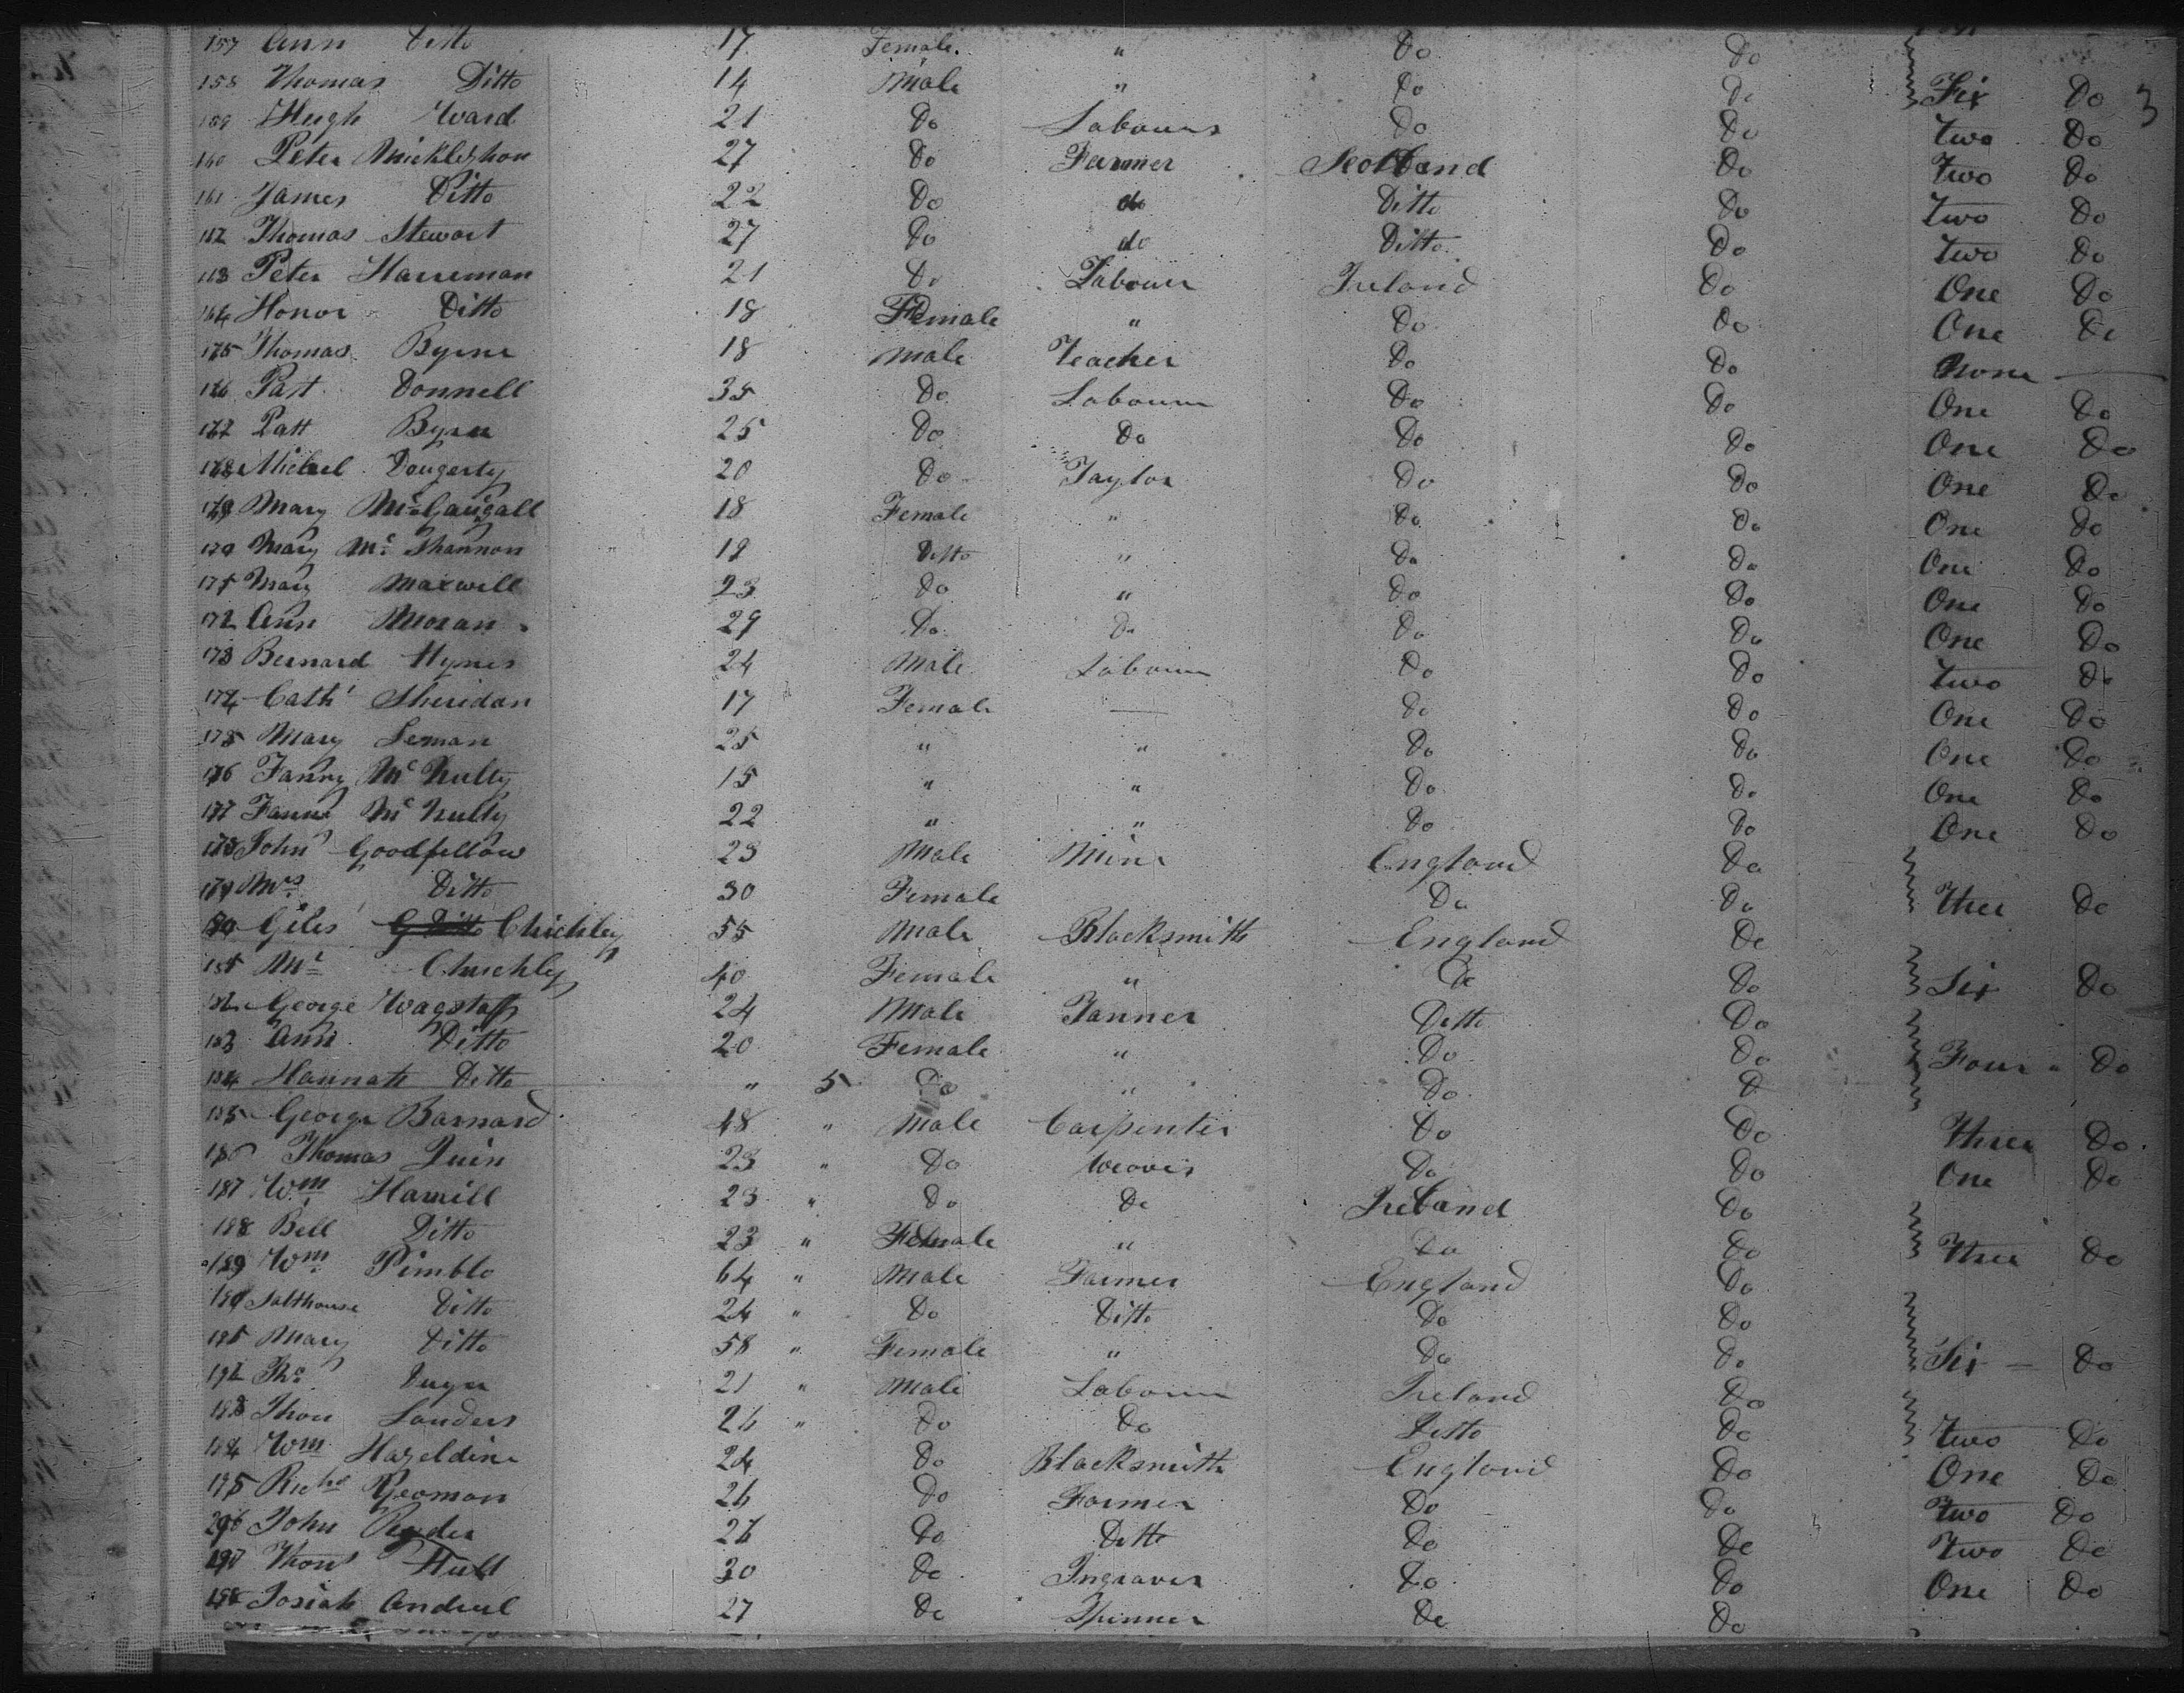 157 Ann Ditto 17 Female. " Do Do
158 Thomas Ditto 14 Male " Do Do Six Do 3
159 Hugh Ward 21 Do Labourer Do Do Two Do
160 Peter 27 Do Farmer Scotland Do Two Do
161 James Ditto 22 Do do Ditto Do Two Do
162 Thomas Stewart 27 Do do Ditto Do Two Do
163 Peter Harreman 21 Do Labourer Ireland Do One Do
164 Honor Ditto 18 Female " Do Do One Do
Thomas Byrne 18 Male Teacher Do Do None
166 Patt Donnell 35 Do Labourer Do Do One Do
167 Patt Byrne 25 Do Do Do Do One Do
168 Michael Dougerty 20 Do Taylor Do Do One Do
169 Mary McGaugall 18 Female " Do Do One Do
170 Mary Mc Shannon 18 Ditto " Do Do One Do
171 Mary Maxwell 23 Do " Do Do One Do
172 Ann Moran 29 Do Do Do Do One Do
173 Bernard Hynes 24 Male Labourer Do Do Two Do
174 Cath Sheridan 17 Female — Do Do One Do
175 Mary Leman 25 " " Do Do One Do
176 Fanny Mc Nulty 15 " " Do Do One Do
177 Fanny Mc Nulty 22 " " Do Do One Do
178 John Goodfellow 23 Male Mine England Do
179 Mrs Ditto 30 Female Do Do Three Do
180 Giles Chichley 55 Male Blacksmith England Do
181 Mrs Chichley 40 Female " Do Do Six Do
182 George Wagstaff 24 Male Tanner Ditto Do
183 Ann Ditto 20 Female " Do Do Four Do
184 Hannah Ditto " 5 Do " Do Do
185 George Barnard 48 " Male Carpenter Do Do Three Do
186 Thomas Quin 23 " Do Weaver Do Do One Do
187 Wm Hamill 23 " Do Do Ireland Do
188 Bell Ditto 23 " Female " Do Do Three Do
189 Wm Pimblo 64 " Male Farmer England Do
190 Salthouse Ditto 24 " Do Ditto Do Do
191 Mary Ditto 58 " Female " Do Do Six — Do
192 Ths 21 " Male Labourer Ireland Do
193 Thos Sanders 26 " Do Do Ditto Do Two Do
194 Wm Hazeldine 24 Do Blacksmith England Do One Do
195 Richd Yeoman 26 Do Farmer Do Do Two Do
196 John Ryder 26 Do Ditto Do Do Two Do
197 Thos Hull 30 Do Ingraver Do Do One Do
198 Josiah 27 Do Spinner Do Do